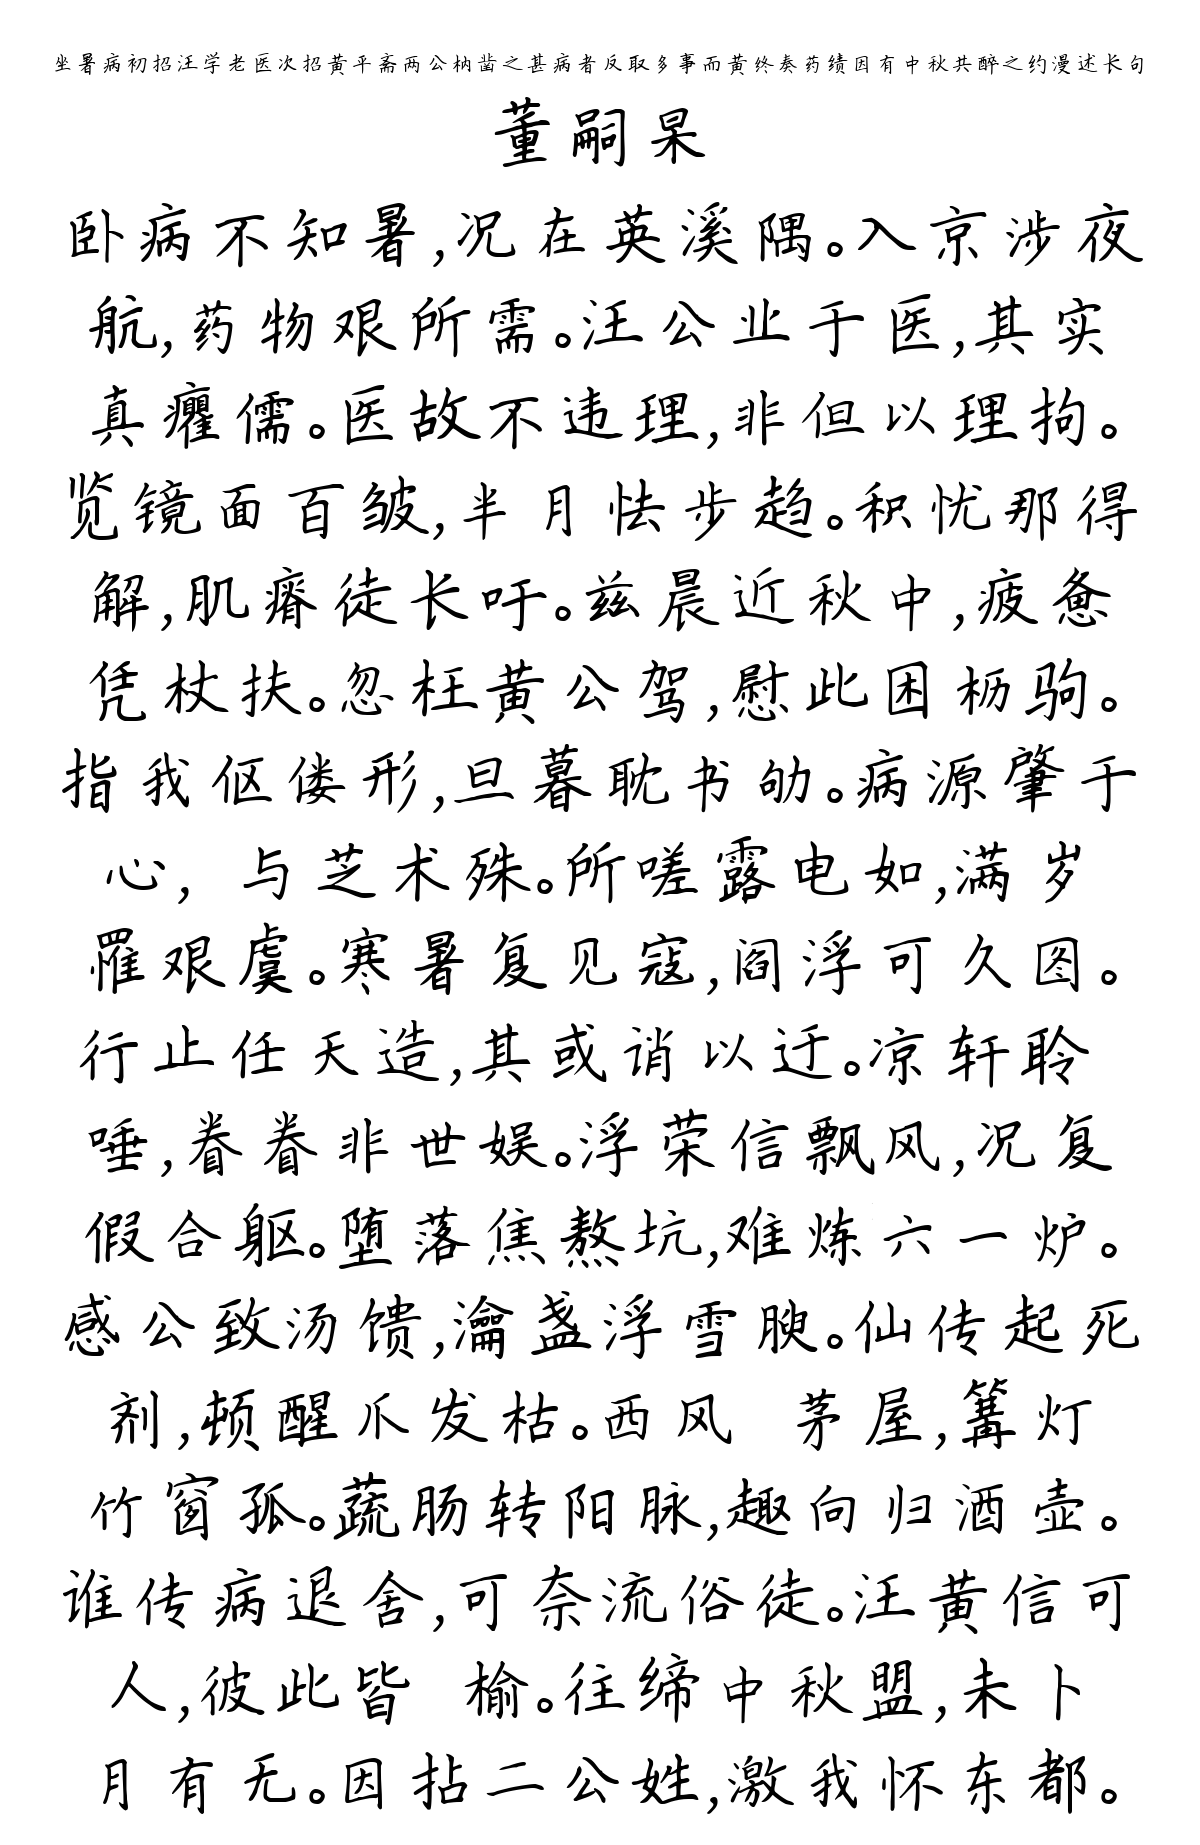 坐暑病初招汪学老医次招黄平斋两公枘凿之甚病者反取多事而黄终奏药绩因有中秋共醉之约漫述长句
董嗣杲
卧病不知暑,况在英溪隅。入京涉夜
航,药物艰所需。汪公业于医,其实
真癯儒。医故不违理,非但以理拘。
览镜面百皱,半月怯步趋。积忧那得
解,肌瘠徒长吁。兹晨近秋中,疲惫
凭杖扶。忽枉黄公驾,慰此困枥驹。
指我伛偻形,旦暮耽书劬。病源肇于
心,与芝术殊。所嗟露电如,满岁
罹艰虞。寒暑复见寇,阎浮可久图。
行止任天造,其或诮以迂。凉轩聆
唾,眷眷非世娱。浮荣信飘风,况复
假合躯。堕落焦熬坑,难炼六一炉。
感公致汤馈,瀹盏浮雪腴。仙传起死
剂,顿醒爪发枯。西风 茅屋,篝灯
竹窗孤。蔬肠转阳脉,趣向归酒壶。
谁传病退舍,可奈流俗徒。汪黄信可
人,彼此皆 榆。往缔中秋盟,未卜
月有无。因拈二公姓,激我怀东都。